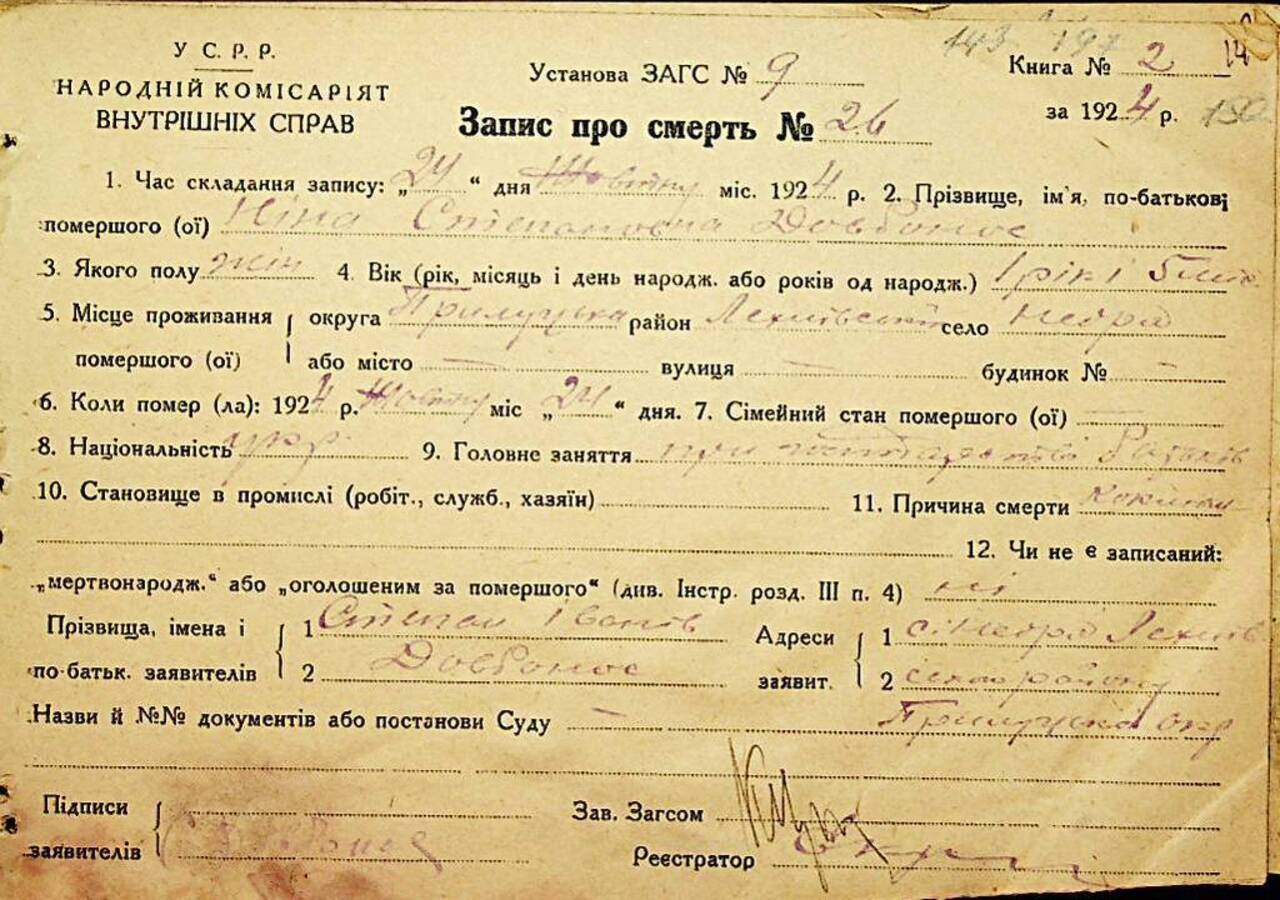 143 197 14
У С. Р. Р.
НАРОДНІЙ КОМІСАРІЯТ
ВНУТРІШНІХ СПРАВ
Установа ЗАГС № 9
Книга № 2
за 1924 р. 150
Запис про смерть № 26
1. Час складання запису: „24“ дня Жовтня міс. 1924 р. 2. Прізвище, ім'я, по-батькові
помершого (ої) Ніна Степановна Довбонос
3. Якого полу жін 4. Вік (рік, місяць і день народж. або років од народж.) 1 рік і 5 міс.
5. Місце проживання округа Прилуцька район село
помершого (ої) або місто — вулиця — будинок № —
6. Коли помер (ла): 1924 р. Жовтня міс „24“ дня. 7. Сімейний стан помершого (ої) —
8. Національність укр. 9. Головне заняття при батьків
10. Становище в промислі (робіт., служб., хазяїн) 11. Причина смерти
12. Чи не є записаний:
„мертвонародж.“ або „оголошеним за помершого“ (див. Інстр. розд. III п. 4) ні
Прізвища, імена і 1 Степан Іванів Адреси 1
по-батьк. заявителів 2 Довбонос заявит. 2 району
Назви й №№ документів або постанови Суду — Прилуцька окр
Підписи Зав. Загсом
заявителів Реєстратор